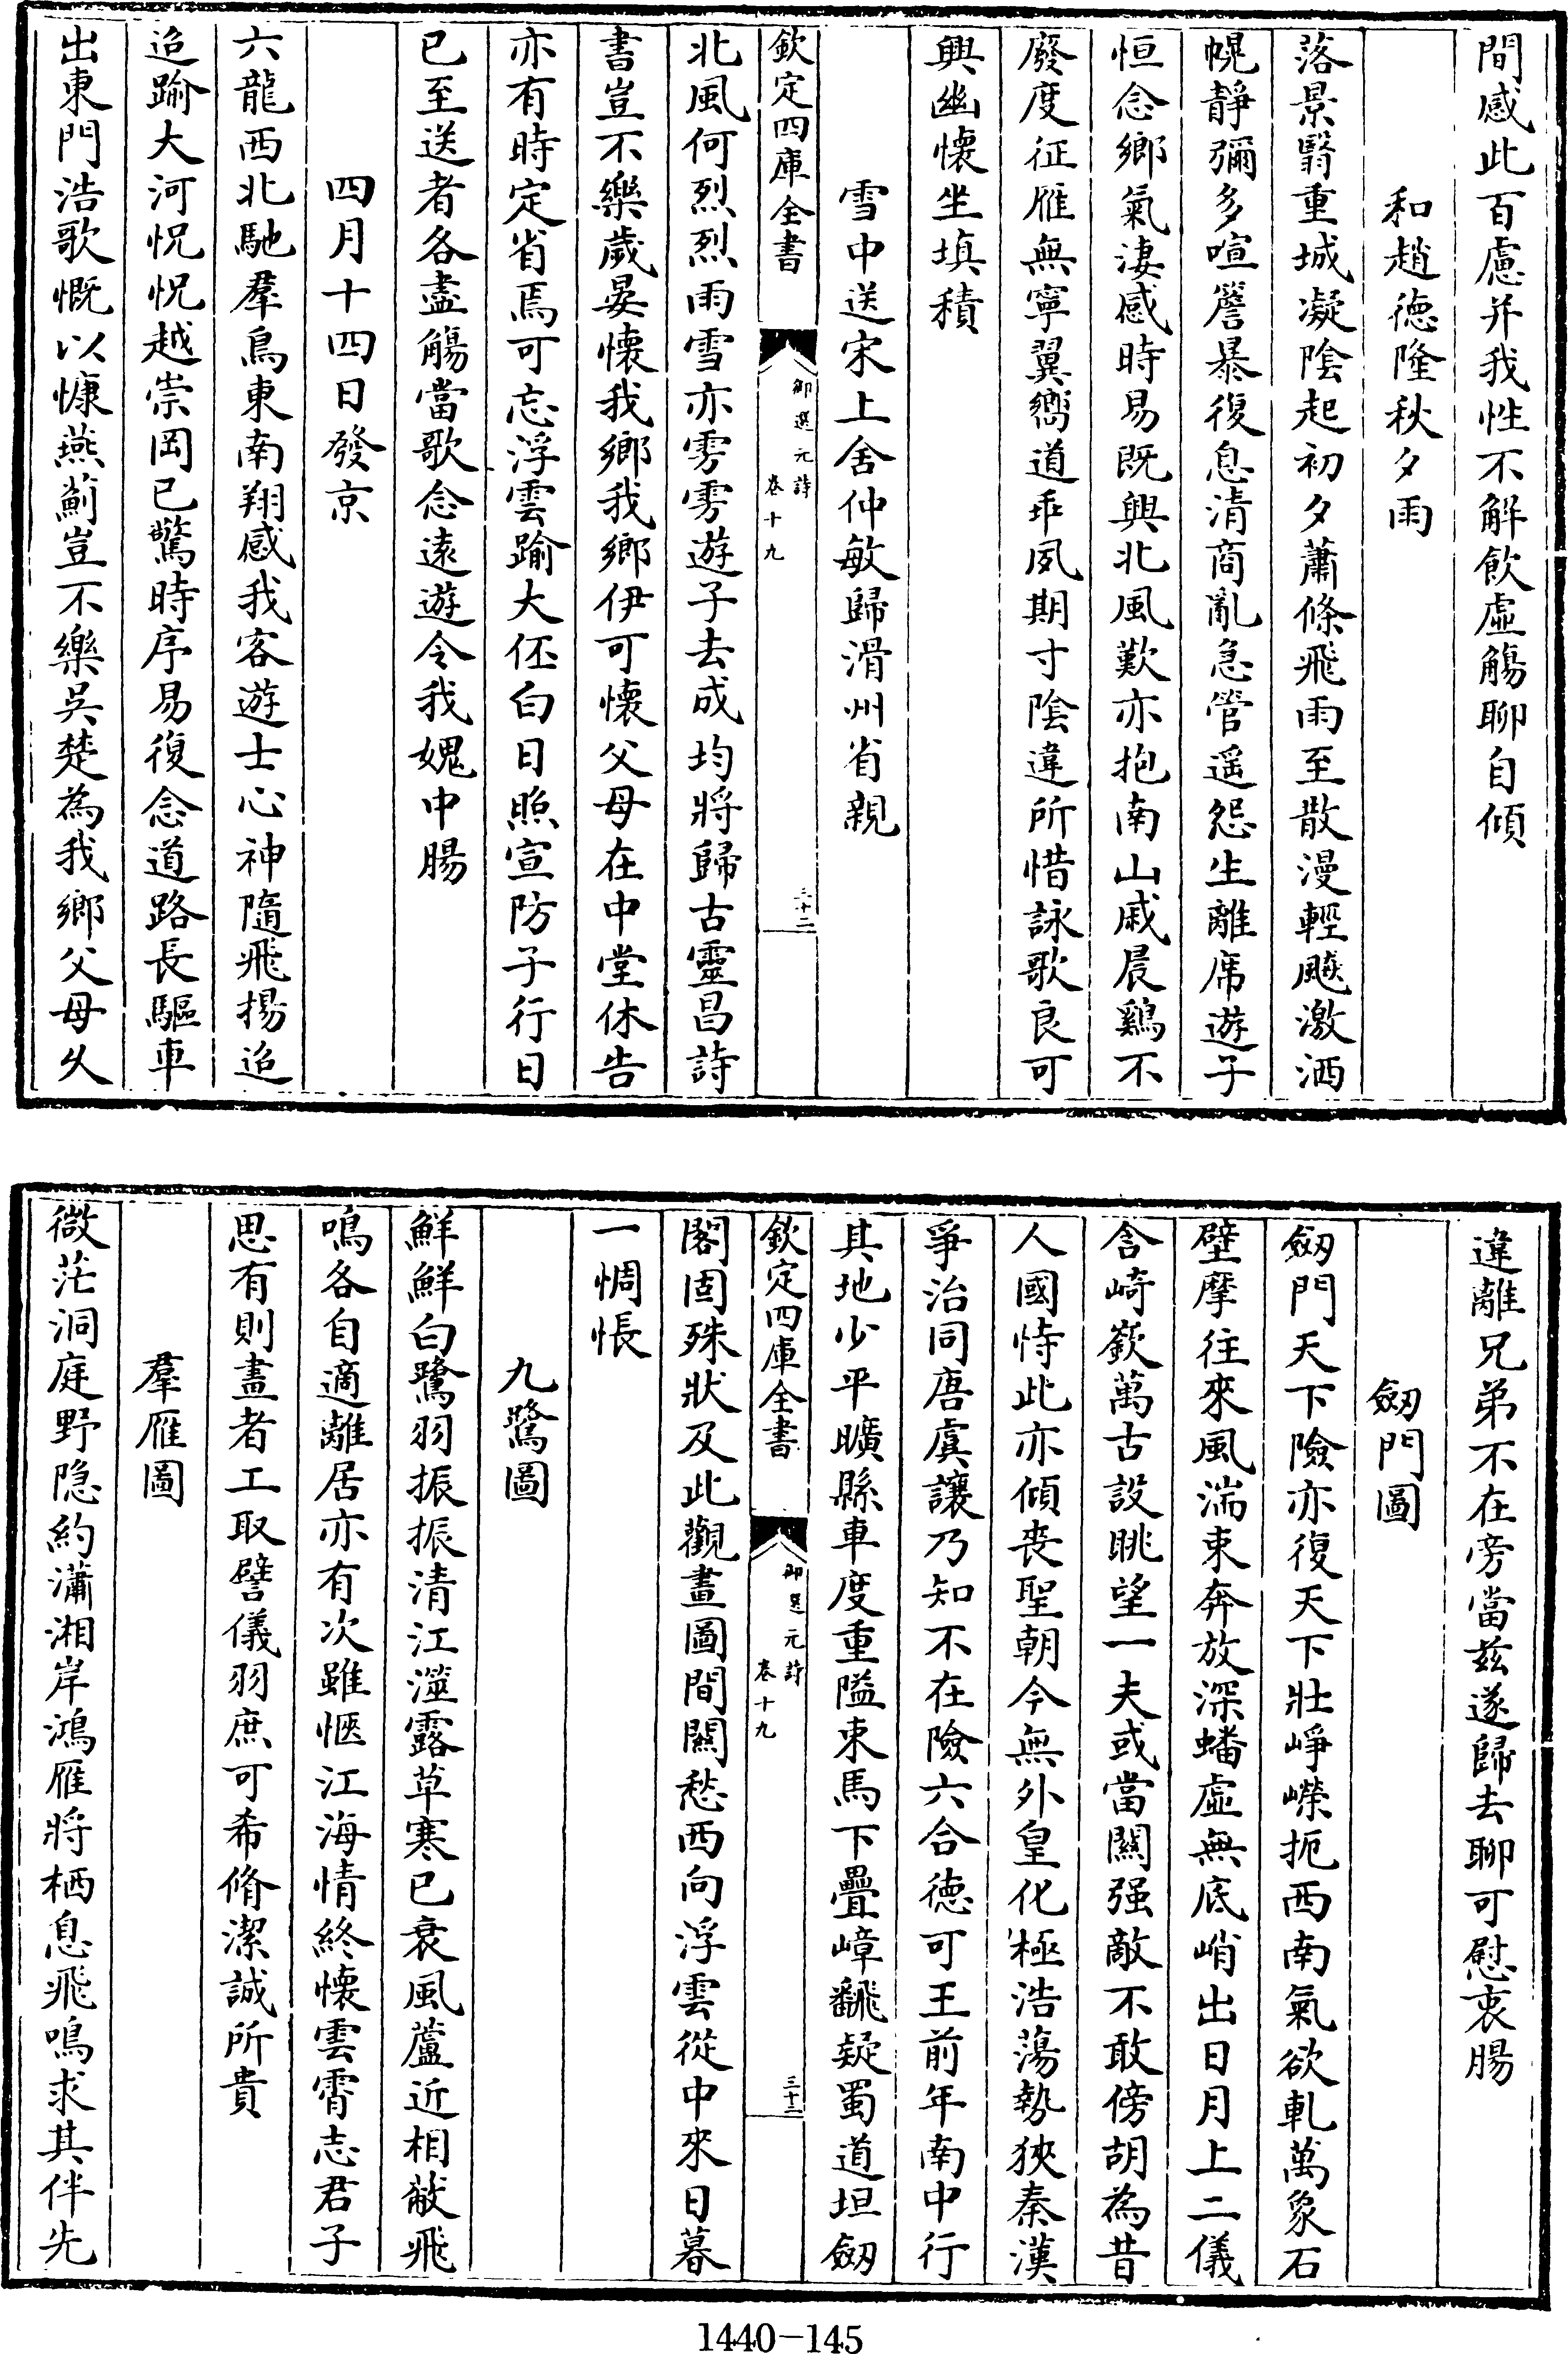 間感此百慮并我性不解飲虛觴聊自傾
和趙德隆秋夕雨
落景翳重城凝陰起初夕蕭條飛雨至散漫輕飈激洒
幌靜彌多喧簷暴復息清商亂急管遥怨生離席遊子
恒念鄉氣淒感時易既興北風歎亦抱南山戚晨鷄不
廢度征雁無寧翼嚮道乖夙期寸陰違所惜詠歌良可
興幽懷坐填積
雪中送宋上舍仲敏歸滑州省親
欽定四庫全書
御選元詩
卷十九
三十二
北風何烈烈雨雪亦雱雱遊子去成均將歸古靈昌詩
書豈不樂歲晏懷我鄉我鄉伊可懷父母在中堂休告
亦有時定省焉可忘浮雲踰大伾白日照宣防子行日
已至送者各盡觴當歌念遠遊令我媿中腸
四月十四日發京
六龍西北馳羣鳥東南翔感我客遊士心神隨飛揚迨
迨踰大河怳怳越崇岡已驚時序易復念道路長驅車
出東門浩歌慨以慷燕薊豈不樂吳楚為我鄉父母久
違離兄弟不在旁當兹遂歸去聊可慰衷腸
劒門圖
劒門天下險亦復天下壯崢嶸扼西南氣欲軋萬象石
壁摩往來風湍束奔放深蟠虛無底峭出日月上二儀
含崎嶔萬古設眺望一夫或當關强敵不敢傍胡為昔
人國恃此亦傾喪聖朝今無外皇化極浩蕩勢狹秦漢
爭治同唐虞讓乃知不在險六合德可王前年南中行
其地少平曠縣車度重隘束馬下疊嶂翻疑蜀道坦劒
欽定四庫全書
御選元詩
卷十九
三十三
閣固殊狀及此觀畫圖間關愁西向浮雲從中來日暮
一惆悵
九鷺圖
鮮鮮白鷺羽振振清江澨露草寒已衰風蘆近相蔽飛
鳴各自適離居亦有次雖愜江海情終懷雲霄志君子
思有則畫者工取譬儀羽庶可希脩潔誠所貴
羣雁圖
微茫洞庭野隐約瀟湘岸鴻雁將栖息飛鳴求其伴先
1440-145